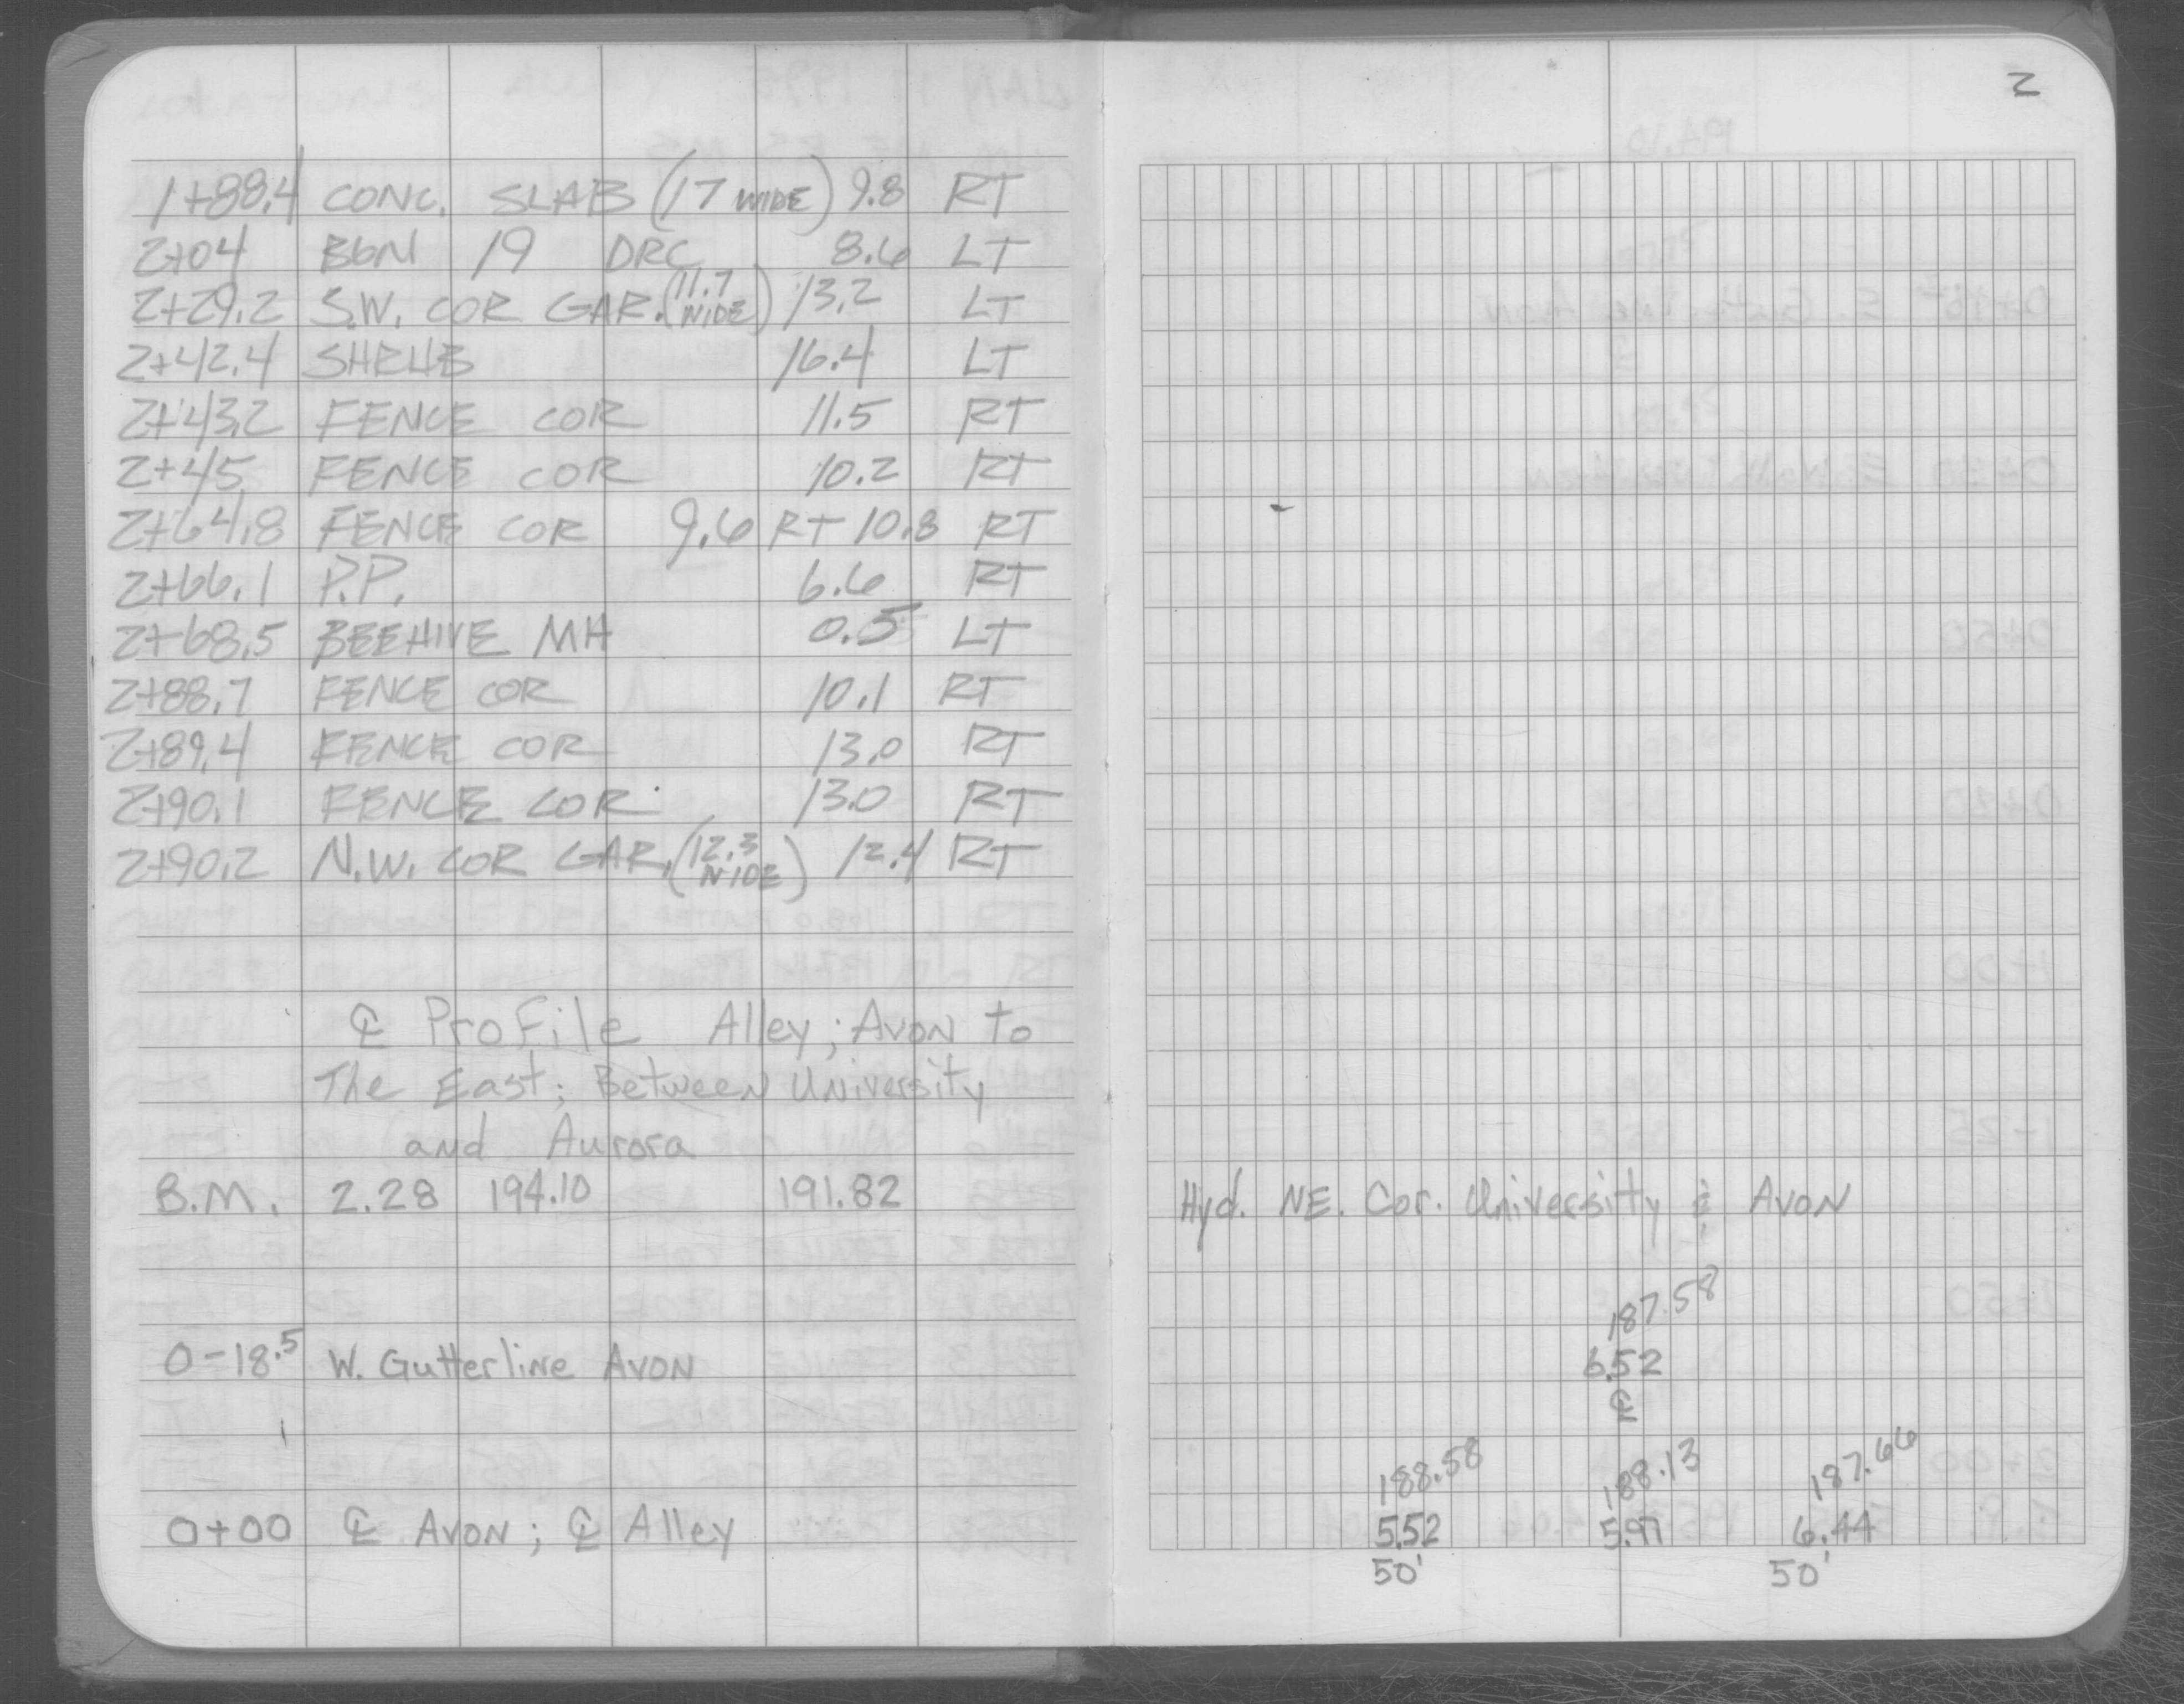 1+88.4 CONC. SLAB (17 WIDE) 9.8 RT
2+04 BGN 19 DRC 8.6 LT
2+29.2 S.W. COR GAR. (11.7 WIDE) 13.2 LT
2+42.4 SHRUB 16.4 LT
2+43.2 FENCE COR 11.5 RT
2+45 FENCE COR 10.2 RT
2+64.8 FENCE COR 9.6 RT 10.8 RT
2+66.1 P.P. 6.6 RT
2+68.5 BEEHIVE MH 0.5 LT
2+88.7 FENCE COR 10.1 RT
2+89.4 FENCE COR 13.0 RT
2+90.1 FENCE COR 13.0 RT
2+90.2 N.W. COR GAR. (12.3 WIDE) 12.4 RT
℄ Profile Alley; Avon to
The East; Between University
and Aurora
B.M. 2.28 194.10 191.82
0-18.5 W. Gutterline Avon
0+00 ℄ Avon; ℄ Alley
2
Hyd. NE. Cor. University & Avon
187.58
6.52
℄
188.58 188.13 187.66
5.52 5.97 6.44
50' 50'